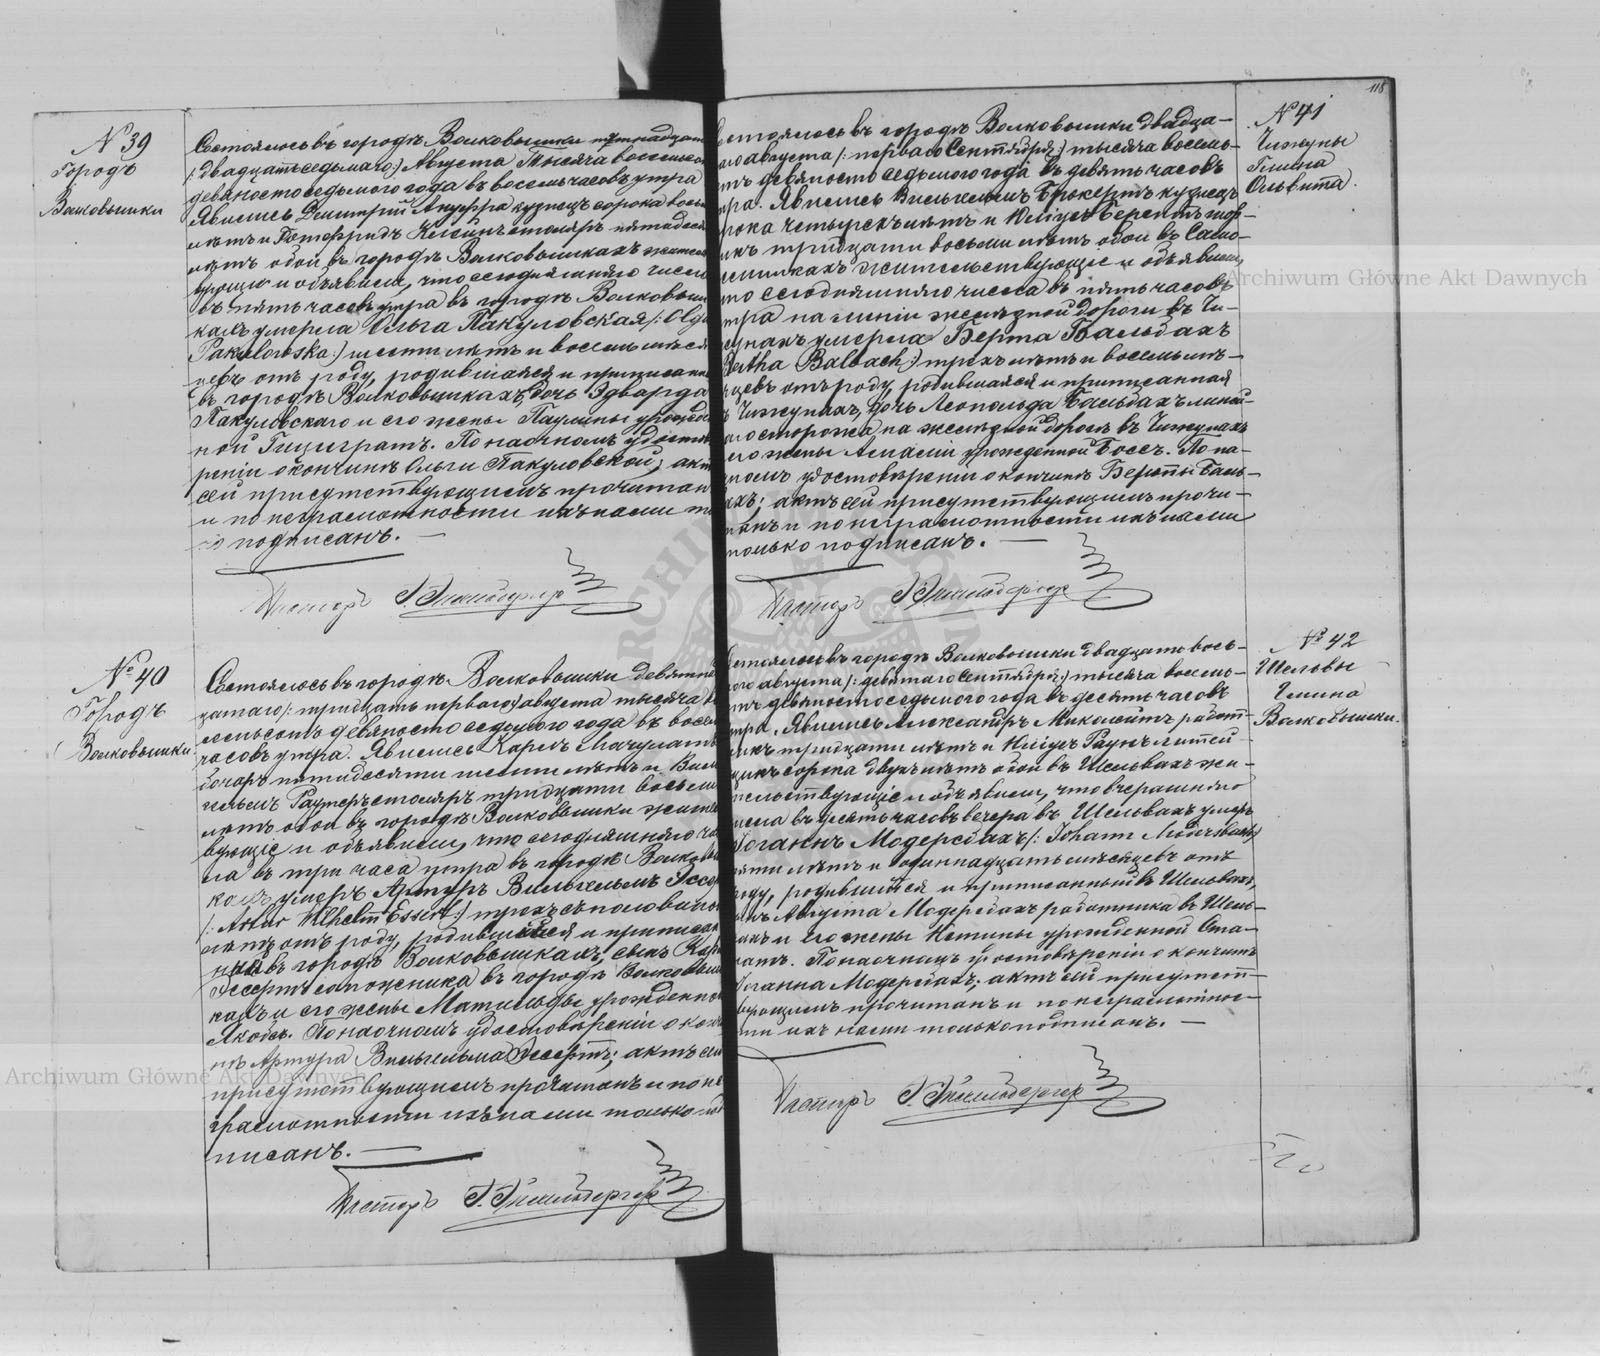 118
№ 39
Городъ
Волковышки
Состоялось въ городѣ Волковышки пятнадцат
/: двадцать седьмаго :/ Августа тысяча восемьсот
девяносто седьмого года въ восемь часовъ утра
Явились Дмитрій кузнецъ сорока восьми
лѣтъ и Готфридъ столяръ пятидесяти
лѣтъ обой въ городѣ Волковышкахъ жительс
вующіе и объявили, что сегодняшняго числа
въ пять часовъ утра въ городѣ Волковыш
кахъ умерла Ольга Пакуловская /: Olga
Pakulowska :/ шести лѣтъ и восемь мѣся
цевъ отъ роду, родившаяся и приписанная
въ городѣ Волковышкахъ, дочь Эдварда
Пакуловскаго и его жены Паулины урожден
ной Гицигратъ. По наочномъ удостовѣ
реніи о кончинѣ Ольги Пакуловской, актъ
сей присутствующимъ прочитанъ
и по неграмотности ихъ нами то
подписанъ. —
Пасторъ
№ 40
Городъ
Волковышки
Состоялось въ городѣ Волковышки девятна
цатаго /: тридцать перваго :/ августа тысяча во
семьсотъ девяносто седьмого года въ восемь
часовъ утра. Явились Карлъ Мачулатъ
бочаръ пятидесяти шести лѣтъ и Виль
гельмъ Раутеръ столяръ тридцати восьми
лѣтъ обой въ городѣ Волковышки жительс
вующіе и объявили, что сегодняшняго чис
ла въ три часа утра въ городѣ Волковыш
кахъ умеръ Артуръ Вильгельмъ Эссерт
/: Artur Wilhelm Essert :/ трехъ съ половиной
лѣтъ отъ роду, родившійся и приписан
ный въ городѣ Волковышкахъ, сынъ Карла
Эссертъ сапожника въ городѣ Волковыш
кахъ и его жены Матильды урожденной
Якобъ. По наочномъ удостовѣреніи о кончи
нѣ Артура Вильгельма Эссертъ; актъ сей
присутствующимъ прочитанъ и по не
грамотности ихъ нами только под
писанъ. —
Пасторъ
№ 41
Чижуны
Гмина
Ольвита.
Состоялось въ городѣ Волковышки двадца-
таго августа /: перваго Сентября :/ тысяча восемь-
сотъ девяносто седьмого года въ девять часовъ
утра. Явились Вильгельмъ Брокертъ кузнецъ
сорока четырехъ лѣтъ и Юлiусъ Берентъ
тридцати восьми лѣтъ обой въ
жительствующіе и объявили,
что сегодняшняго числа въ пять часовъ
утра на линіи желѣзной дороги въ Чи-
жунахъ умерла Берта Бальбахъ
/: Bertha Balbach :/ трехъ лѣтъ и восемь мѣ-
сяцевъ отъ роду, родившаяся и приписанная
въ Чижунахъ, дочь Леопольда Бальбахъ линей-
наго сторожа на желѣзной дорогѣ въ Чижунахъ
и его жены Амаліи урожденной Боссъ. По на-
очномъ удостовѣреніи о кончинѣ Берты Баль-
бахъ; актъ сей присутствующимъ прочи-
танъ и по неграмотности ихъ нами
только подписанъ. —
Пасторъ
№ 42
Шельвы
Гмина
Волковышки.
Состоялось въ городѣ Волковышки двадцать вось-
мого августа /: девятаго Сентября :/ тысяча восемь-
сотъ девяносто седьмого года въ десять часовъ
утра. Явились Александръ Миколейтъ работ-
никъ тридцати лѣтъ и Юлiусъ Раунъ литей-
щикъ сорока двухъ лѣтъ обой въ Шельвахъ жи-
тельствующіе и объявили, что вчерашняго
числа въ десять часовъ вечера въ Шельвахъ умеръ
Іоганнъ Модербахъ /: Johann :/
пяти лѣтъ и одиннадцать мѣсяцевъ отъ
роду, родившійся и приписанный въ Шельвахъ,
сынъ Августа Модербахъ работника въ Шель-
вахъ и его жены урожденной Ста-
натъ. По наочномъ удостовѣреніи о кончинѣ
Іоганна Модербахъ; актъ сей присутст-
вующимъ прочитанъ и по неграмотнос-
ти ихъ нами только подписанъ. —
Пасторъ
Archiwum Główne Akt Dawnych
Archiwum Główne Akt Dawnych